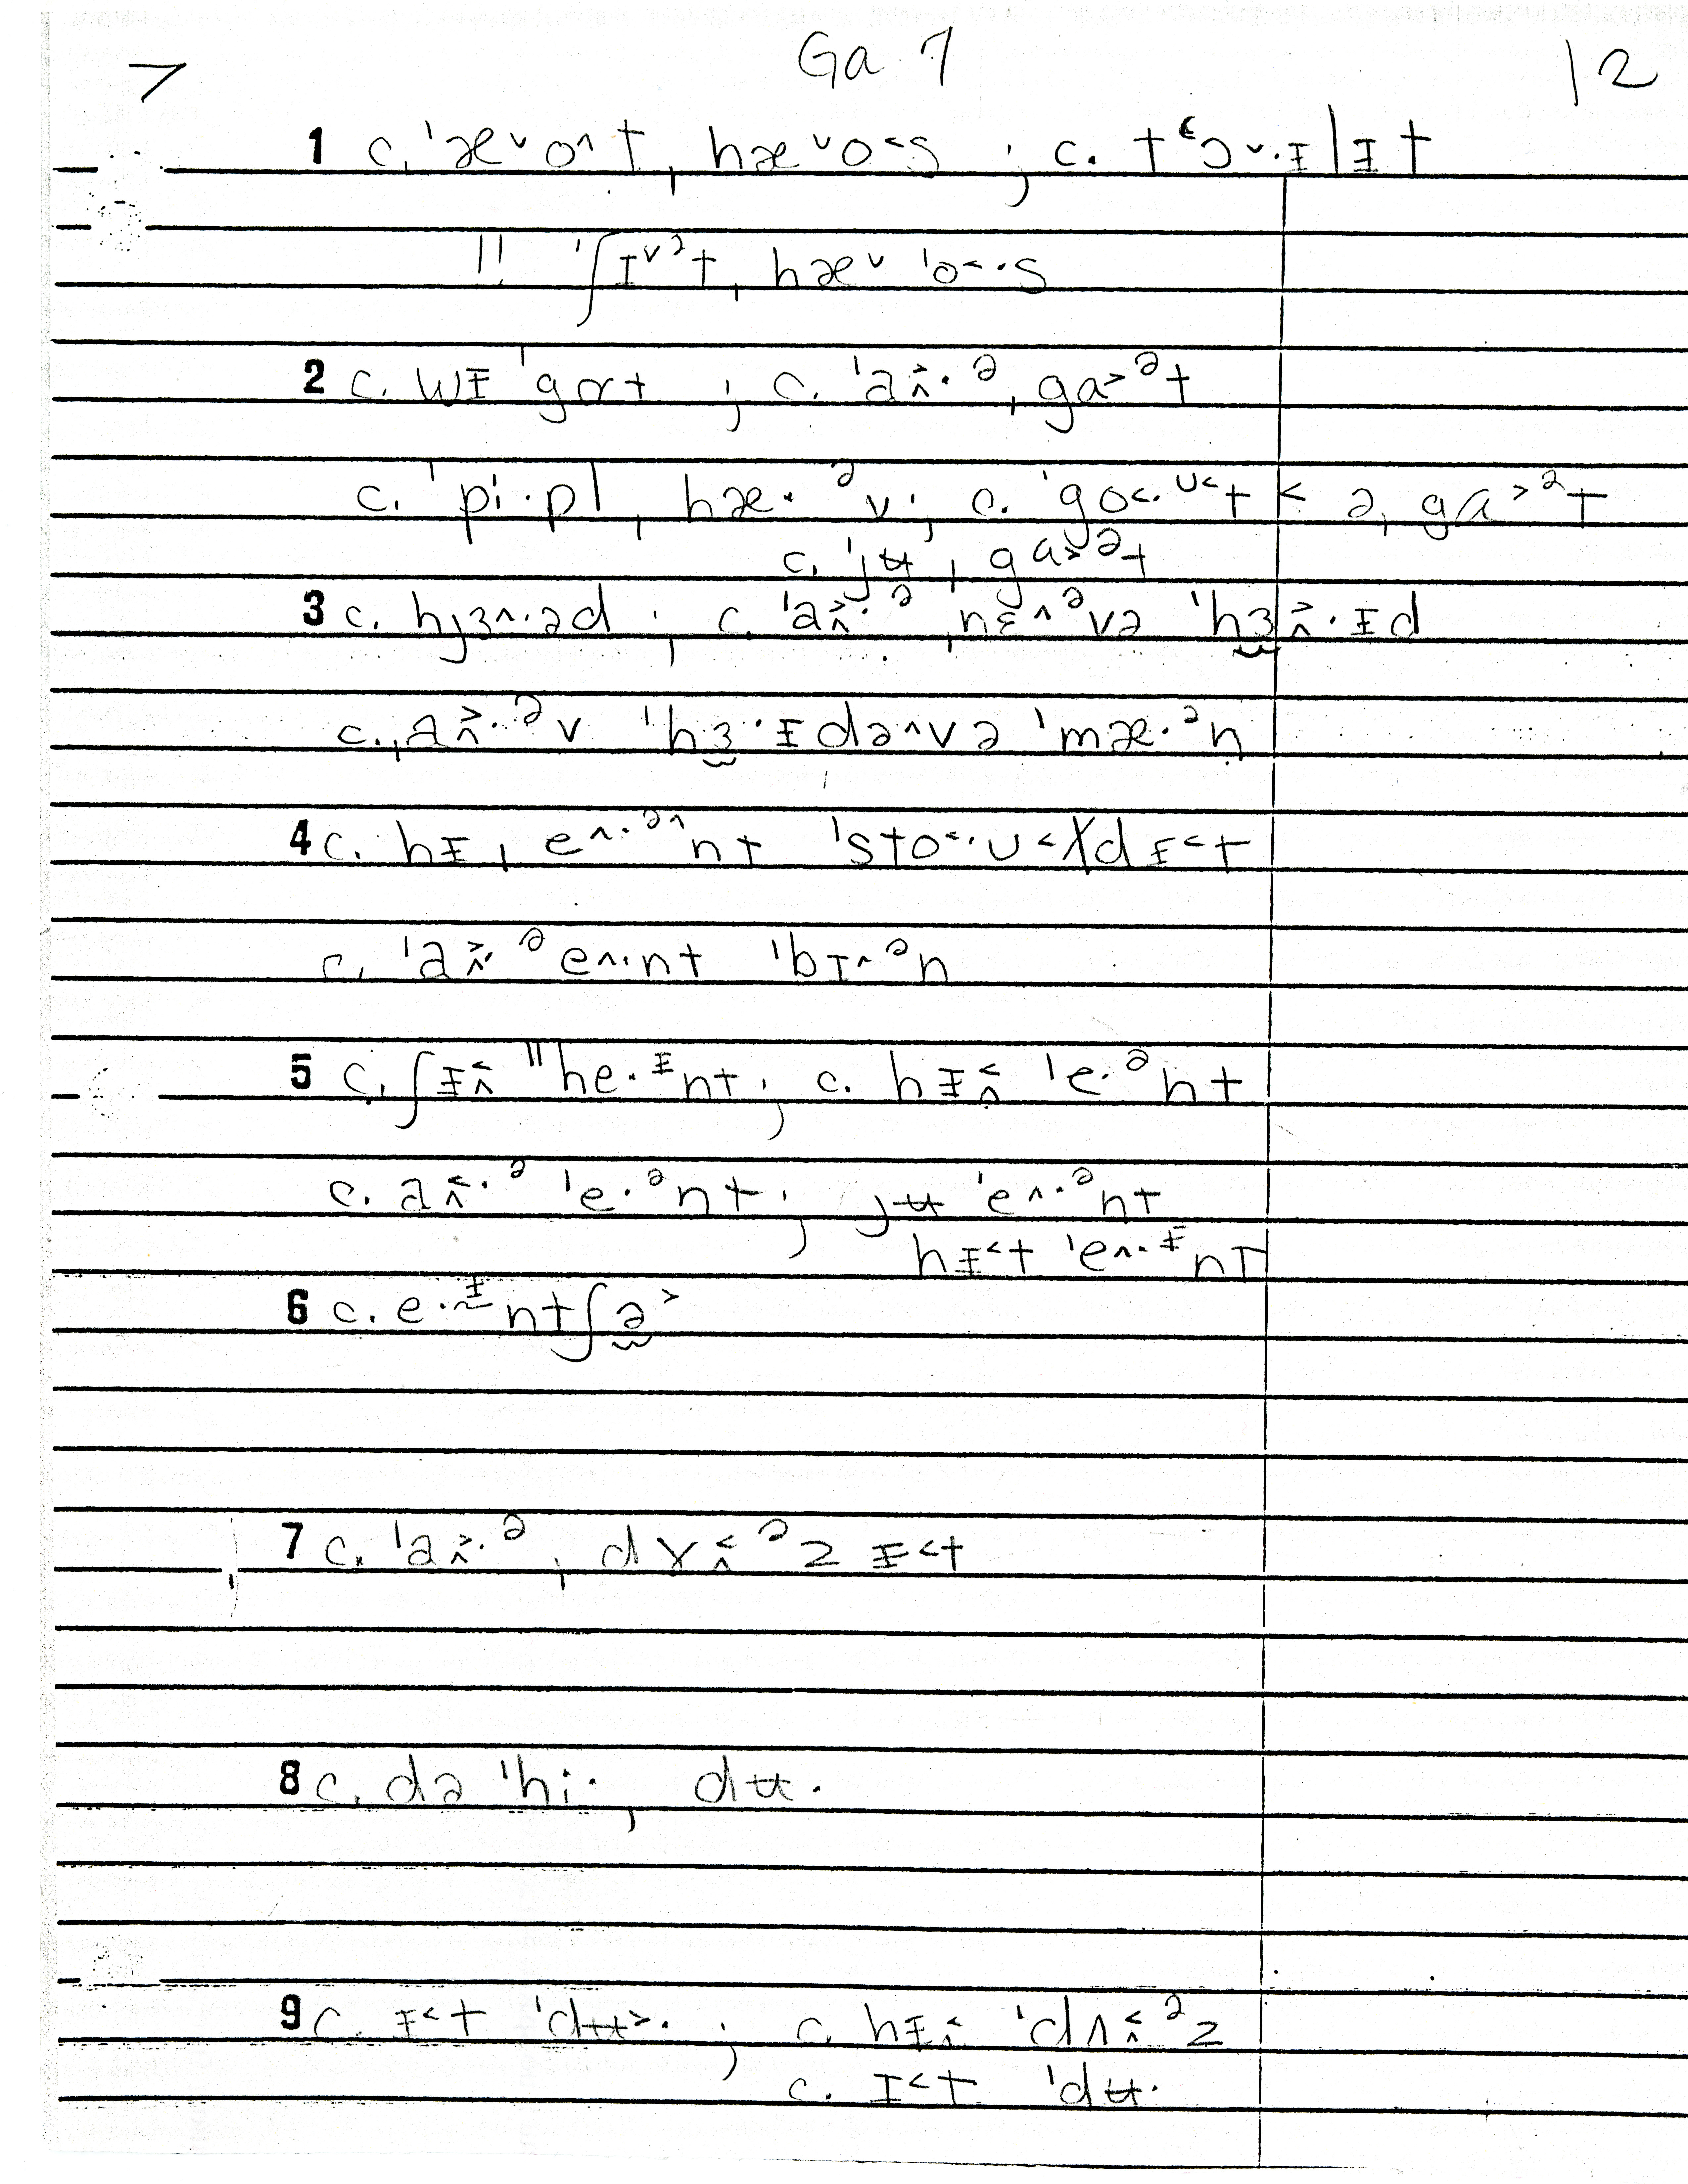 > Ga 7 12
1 c. ˈæ˅o˄t, hæ˅o˂s ; c. tʿɔ˅·ɪ̵lɪ̵t
!! ˈʃɪ˅ᵊt, hæ˅ ˈo˂·s
2 c. wɪ̵ ˈgɒt ; c. ˈa˄˃·ᵊ ˌga˃ᵊt
c. ˈpi·pl ˌhæ·ᵊv ; c. ˈgo˂·ᶷ˂t˂ə ˌga˃ᵊt
c. ˈjʉ ˌga˃ᵊt
3 c. hjɜ˄·əd ; c. ˈa˄˃·ᵊ ˌnɛ˄ᵊvə ˈhɜ˄˃·ɪ̵d
c. ˌa˄˃·ᵊv ˈhɜ·ɪ̵də˄və ˈmæ·ᵊn
4 c. hɪ̵ ˌe˄·ᵊ˄nt ˈsto˂·ʊ˂dɪ̵˂t
c. ˈa˄˃·ᵊ e˄·nt ˈbɪ˄ᵊn
5 c. ʃɪ̵˄˂ ˈˈhe·ᶤnt ; c. hɪ̵˄˂ ˈe·ᵊnt
c. a˄˂·ᵊ ˈe·ᵊnt ; jʉ ˈe˄·ᵊnt
hɪ̵˂t ˈe˄·ᶤnt
6 c. e·ᶤ̃ntʃə˃
7 c. ˈa˄˃·ᵊ ˌdɤ˄˂ᵊz ɪ̵˂t
8 c. də ˈhi· ˌdʉ·
9 c. ɪ̵˂t ˈdʉ˃· ; c. hɪ̵˄˂ ˈdʌ˄˂ᵊz
c. ɪ˂t ˈdʉ·